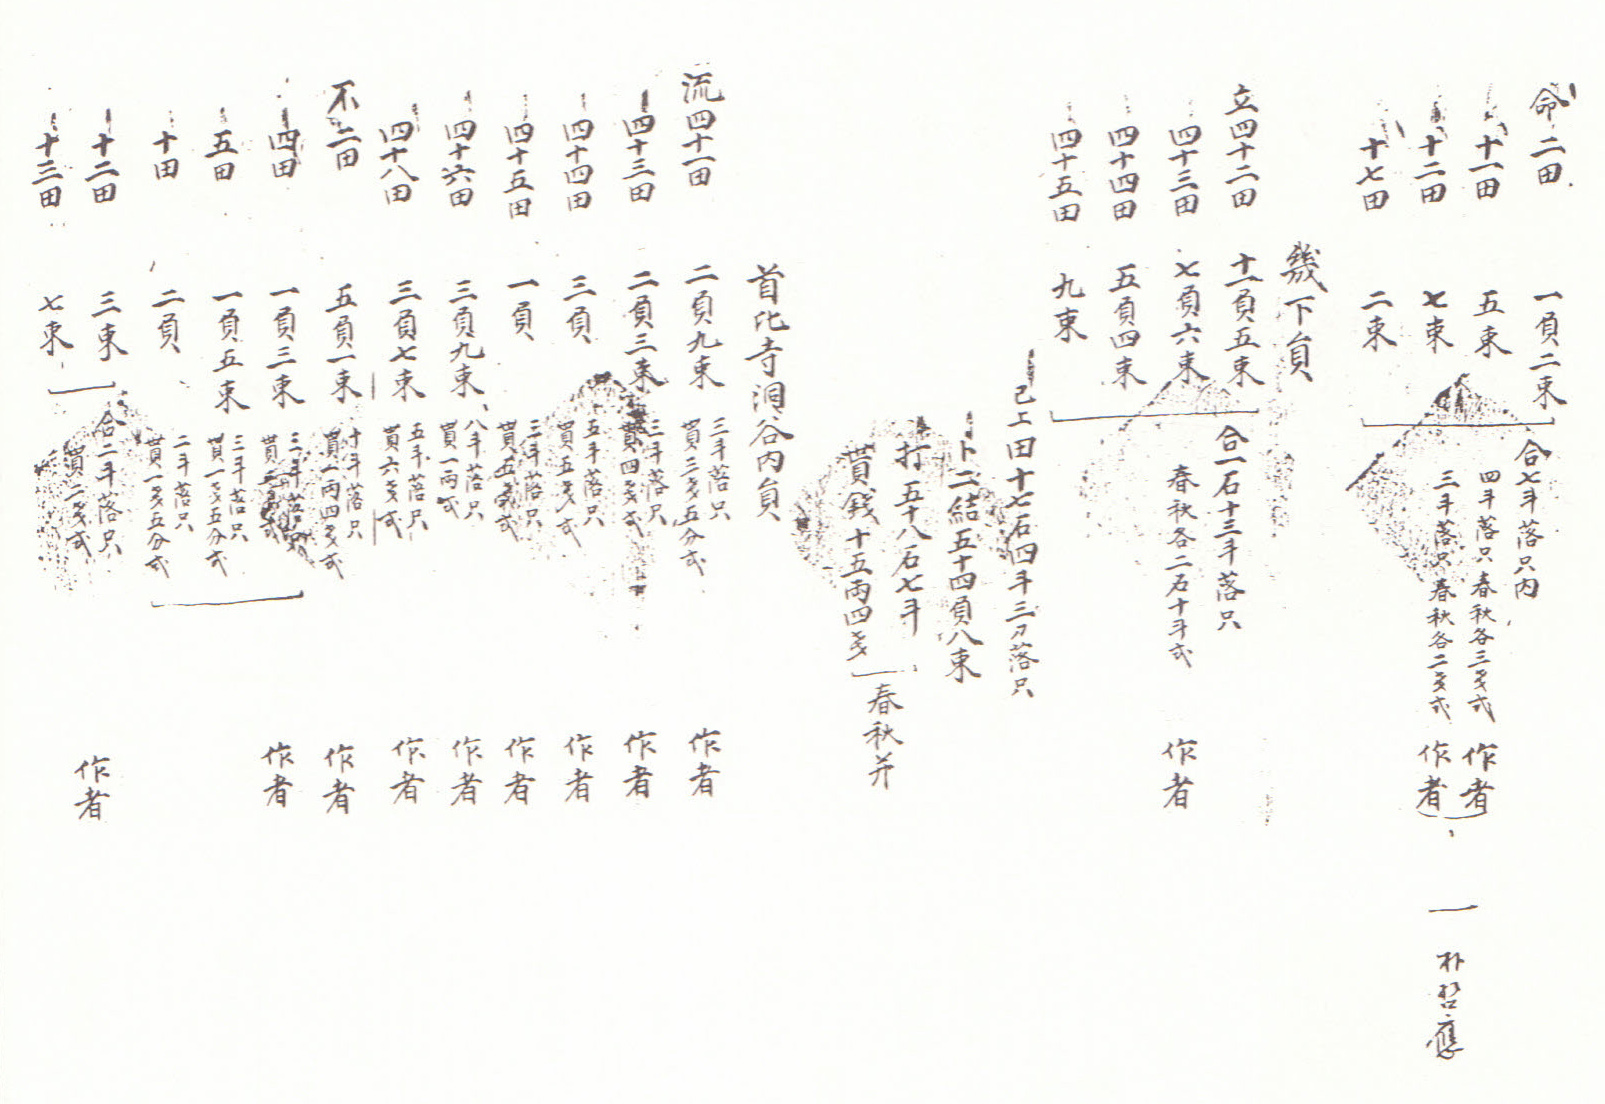 命二田 一負二束 合七斗落只內
十一田 五束 四斗落只春秋各三戔式 作者
十二田 七束 三斗落只春秋各二戔式 作者 一 朴 應
十七田 二束
幾下員
立四十二田 十一負五束 合一石十三斗落只
四十三田 七負六束 春秋各二石十斗式 作者
四十四田 五負四束
四十五田 九束
已上田十七石四斗三刀落只
卜二結五十四負八束
打五十八石七斗
貰錢十五兩四戔 春秋并
首比寺洞谷內員
流四十一田 二負九束 三斗落只 貰三戔五分式 作者
四十三田 二負三束 三斗落只 貰四戔式 作者
四十四田 三負 五斗落只 貰五戔式 作者
四十五田 一負 三斗落只 貰五戔式 作者
四十六田 三負九束 八斗落只 貰一兩式 作者
四十八田 三負七束 五斗落只 貰六戔式 作者
不二田 五負一束 十斗落只 貰一兩四戔式 作者
四田 一負三束 三斗落只 貰 戔式 作者
五田 一負五束 三斗落只 貰一戔五分式
十田 二負 二斗落只 貰一戔五分式
十二田 三束 合二斗落只 貰二戔式 作者
十三田 七束